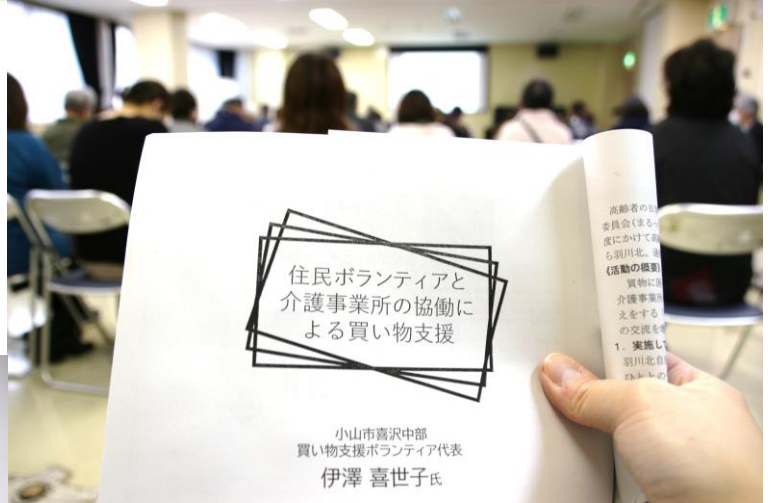 住民ボランティアと
介護事業所の協働に
よる買い物支援
小山市喜沢中部
買い物支援ボランティア代表
伊澤 喜世子氏
高齢者の日
委員会(まるっ
度にかけて高
ら羽川北、
《活動の概要》
買物に
介護事業所
えをする
の交流を
1. 実施し
羽川北自
ひとの